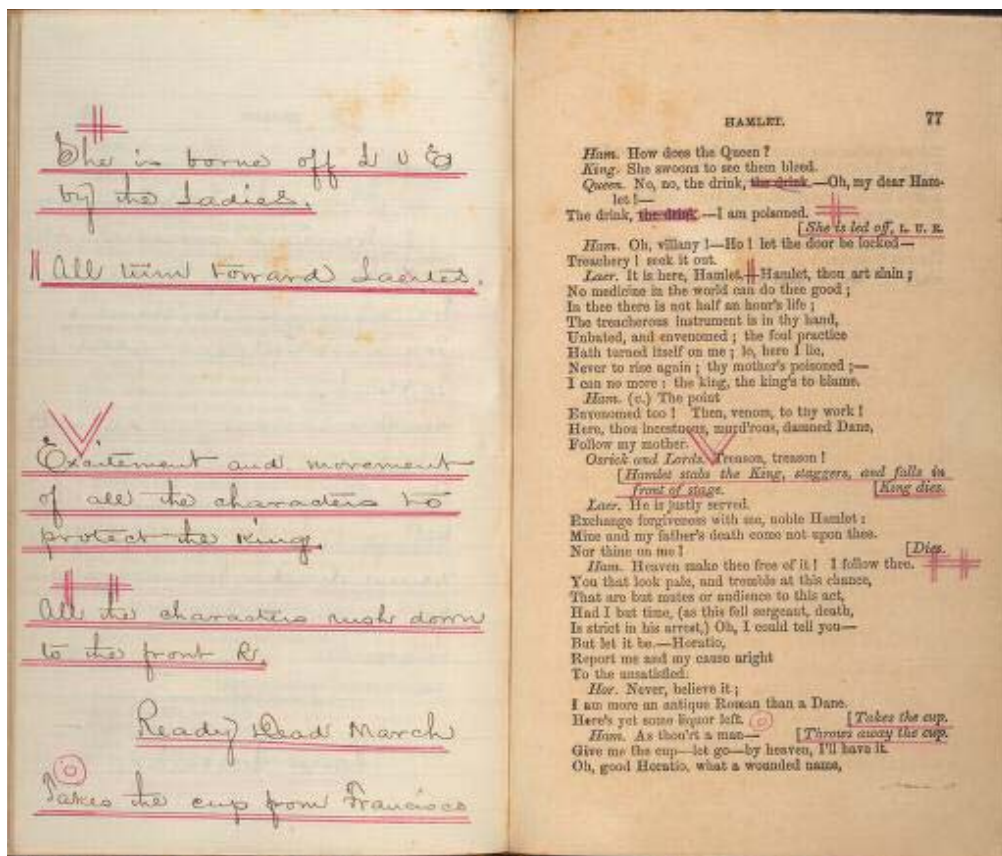 She is borne off L U E
by the Ladies.
All turn toward Laertes.
Excitement and movement
of all the characters to
protect the King.
All the characters rush down
to the front R.
Ready Dead March
Takes the cup from Francisco
HAMLET. 77
Ham. How does the Queen?
King. She swoons to see them bleed.
Queen. No, no, the drink, the drink.—Oh, my dear Ham-
let!—
The drink, the drink.—I am poisoned.
[She is led off, L. U. E.
Ham. Oh, villany!—Ho! let the door be locked—
Treachery! seek it out.
Laer. It is here, Hamlet.—Hamlet, thou art slain;
No medicine in the world can do thee good;
In thee there is not half an hour's life;
The treacherous instrument is in thy hand,
Unbated, and envenomed; the foul practice
Hath turned itself on me; lo, here I lie,
Never to rise again; thy mother's poisoned;—
I can no more: the king, the king's to blame.
Ham. (C.) The point
Envenomed too! Then, venom, to thy work!
Here, thou incestuous, murd'rous, damned Dane,
Follow my mother.
Osrick and Lords. Treason, treason!
[Hamlet stabs the King, staggers, and falls in
front of stage. [King dies.
Laer. He is justly served.
Exchange forgiveness with me, noble Hamlet:
Mine and my father's death come not upon thee.
Nor thine on me! [Dies.
Ham. Heaven make thee free of it! I follow thee.
You that look pale, and tremble at this chance,
That are but mutes or audience to this act,
Had I but time, (as this fell sergeant, death,
Is strict in his arrest,) Oh, I could tell you—
But let it be.—Horatio,
Report me and my cause aright
To the unsatisfied.
Hor. Never, believe it;
I am more an antique Roman than a Dane.
Here's yet some liquor left. [Takes the cup.
Ham. As thou'rt a man— [Throws away the cup.
Give me the cup—let go—by heaven, I'll have it.
Oh, good Horatio, what a wounded name,